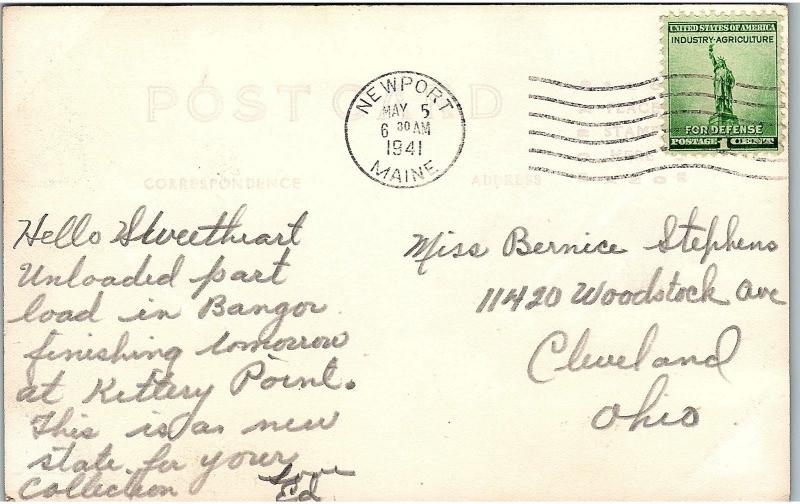 POST CARD
CORRESPONDENCE
ADDRESS
NEWPORT
MAY 5
6 30 AM
1941
MAINE
UNITED STATES OF AMERICA
INDUSTRY-AGRICULTURE
FOR DEFENSE
POSTAGE 1 CENT
PLACE
STAMP
HERE
Hello Sweetheart
Unloaded part
load in Bangor
finishing tomorrow
at Kittery Point.
This is a new
state for your
collection
Love
Ed
Miss Bernice Stephens
11420 Woodstock Ave
Cleveland
Ohio